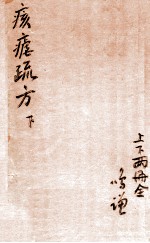 痎瘧疏方 下
上下兩冊全
鳴謙